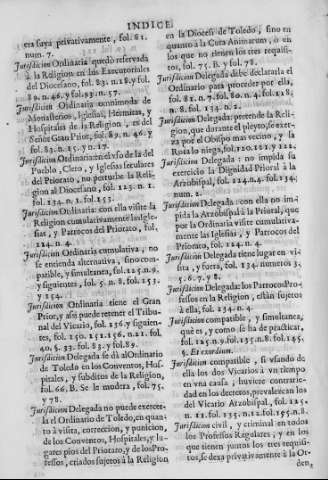 INDICE
era suya privativamente, fol. 81.
num. 7.
Jurisdicion Ordinaria quedo reservada
à la Religion en sus Executoriales
del Diocesano, fol. 83. n.18. y fol.
89. n.46. y fol.93. n.57.
Jurisdicion Ordinaria omnimoda de
Monasterios, Iglesias, Hermitas, y
Hospitales de la Religion, es del
Señor Gran Prior, fol. 89. n.46. y
fol. 83. n.15. y n.17.
Jurisdicion Ordinaria en el vso de la del
Pueblo, Clero, y Iglesias seculares
del Priorato, no perturbe la Reli-
gion al Diocesano, fol. 125. n. 1.
fol. 134. n. 1. fol. 153.
Jurisdicion Ordinaria: con ella visite la
Religion cumulativamente las Igle-
sias, y Parrocos del Priorato, fol.
124. n. 4.
Jurisdicion Ordinaria cumulativa, no
se entienda alternativa, sino com-
patible, y simultanea, fol. 125. n. 9.
y siguientes, fol. 5. n. 8. fol. 153.
y 154.
Jurisdicion Ordinaria tiene el Gran
Prior, y assi puede retener el Tribu-
nal del Vicario, fol. 136. y siguien-
tes, fol. 150. 151. 156. n. 21. fol.
40. §. 33. fol. 83. y fol. 89.
Jurisdicion Delegada se dà al Ordinario
de Toledo en los Conventos, Hos-
pitales, y subditos de la Religion,
fol. 66. B. Se le modera, fol. 75.
y 78.
Jurisdicion Delegada no puede exerce-
la el Ordinario de Toledo, en quan-
to à visita, correccion, y punicion,
de los Conventos, Hospitales, y lu-
gares pios del Priorato, y de los Pro-
fesos, criados sujetos à la Religion
en la Diocesi de Toledo, sino en
quanto à la Cura Animarum, y en
los que no tienen los tres requisi-
tos, fol. 75. B. y fol. 78.
Jurisdicion Delegada debe declararla el
Ordinario para proceder por ella,
fol. 81. n. 7. fol. 80. n. 4. fol. 118.
n. 8. fol. 134. n. 2.
Jurisdicion Delegada: pretende la Reli-
gion, que durante el pleyto, so exer-
za por el Obispo mas vecino, y la
Rota lo niega, fol. 120. 121. y 122.
Jurisdicion Delegada: no impida su
exercicio la Dignidad Prioral à la
Arzobispal, fol. 124. n. 4. fol. 134.
num. 1.
Jurisdicion Delegada: con ella no im-
pida la Arzobispal à la Prioral, que
por la Ordinaria visite cumulativa-
mente las Iglesias, y Parrocos del
Priorato, fol. 124. n. 4.
Jurisdicion Delegada tiene lugar en vi-
sita, y fuera, fol. 134. numeros 3.
5. 6. 7. y 8.
Jurisdicion Delegada: los Parrocos Pro-
fessos en la Religion, estàn sujetos
à ella, fol. 134. n. 4.
Jurisdicion compatible, y simultanea,
què es, y como se ha de practicar,
fol. 125. n. 9. fol. 135. n. 8. fol. 145.
§. Et exordium.
Jurisdicion compatible, si vsando de
ella los dos Vicarios à vn tiempo
en vna causa, huviere contrarie-
dad en los decretos, prevalezcan los
del Vicario Arzobispal, fol. 125.
n. 11. fol. 135. n. 12. fol. 195. n. 8.
Jurisdicion civil, y criminal en todos
los Professos Regulares, y en los
que tienen juntos los tres requisi-
tos, se dexa privativamente à la Or-
den